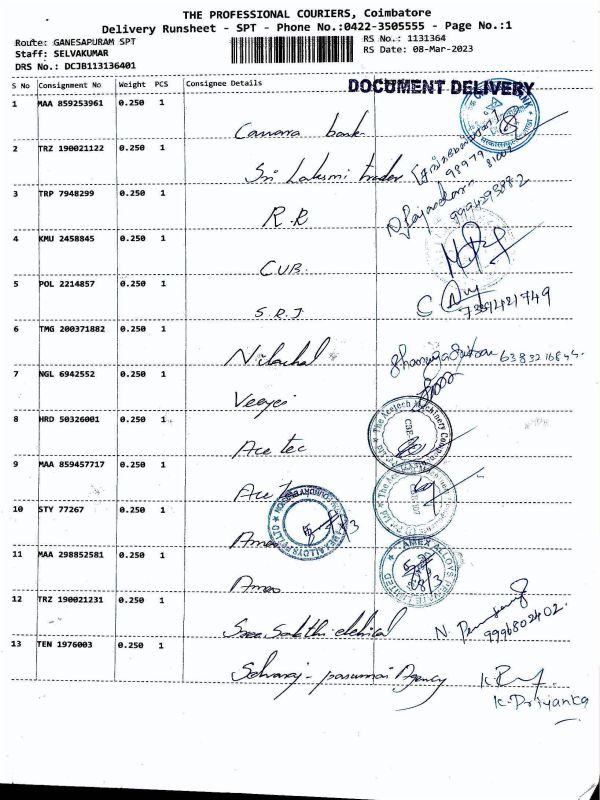 THE PROFESSIONAL COURIERS, Coimbatore
Delivery Runsheet - SPT - Phone No.:0422-3505555 - Page No.:1
Route: GANESAPURAM SPT
RS No.: 1131364
Staff: SELVAKUMAR
RS Date: 08-Mar-2023
DRS No.: DCJB113136401
S No Consignment No Weight PCS Consignee Details
DOCUMENT DELIVERY
1 MAA 859253961 0.250 1 Canara bank
2 TRZ 190021122 0.250 1 Sri Laksmi trader
98979 81007
3 TRP 7948299 0.250 1 R.R
4 KMU 2458845 0.250 1 CUB.
5 POL 2214857 0.250 1 S.R.J
6 TMG 200371882 0.250 1 Nilachal
6383216845.
7 NGL 6942552 0.250 1 Veeyei
8 HRD 50326001 0.250 1 Ace tec
The Acetech Machinery
CBE
9 MAA 859457717 0.250 1 Ace
10 STY 77267 0.250 1 Amex
11 MAA 298852581 0.250 1 Amex
AMEX ALLOYS PRIVATE LIMITED
12 TRZ 190021231 0.250 1 Sree Sakthi
9996802402.
13 TEN 1976003 0.250 1 Selvaraj - pasumai Agency
K. Priyanka